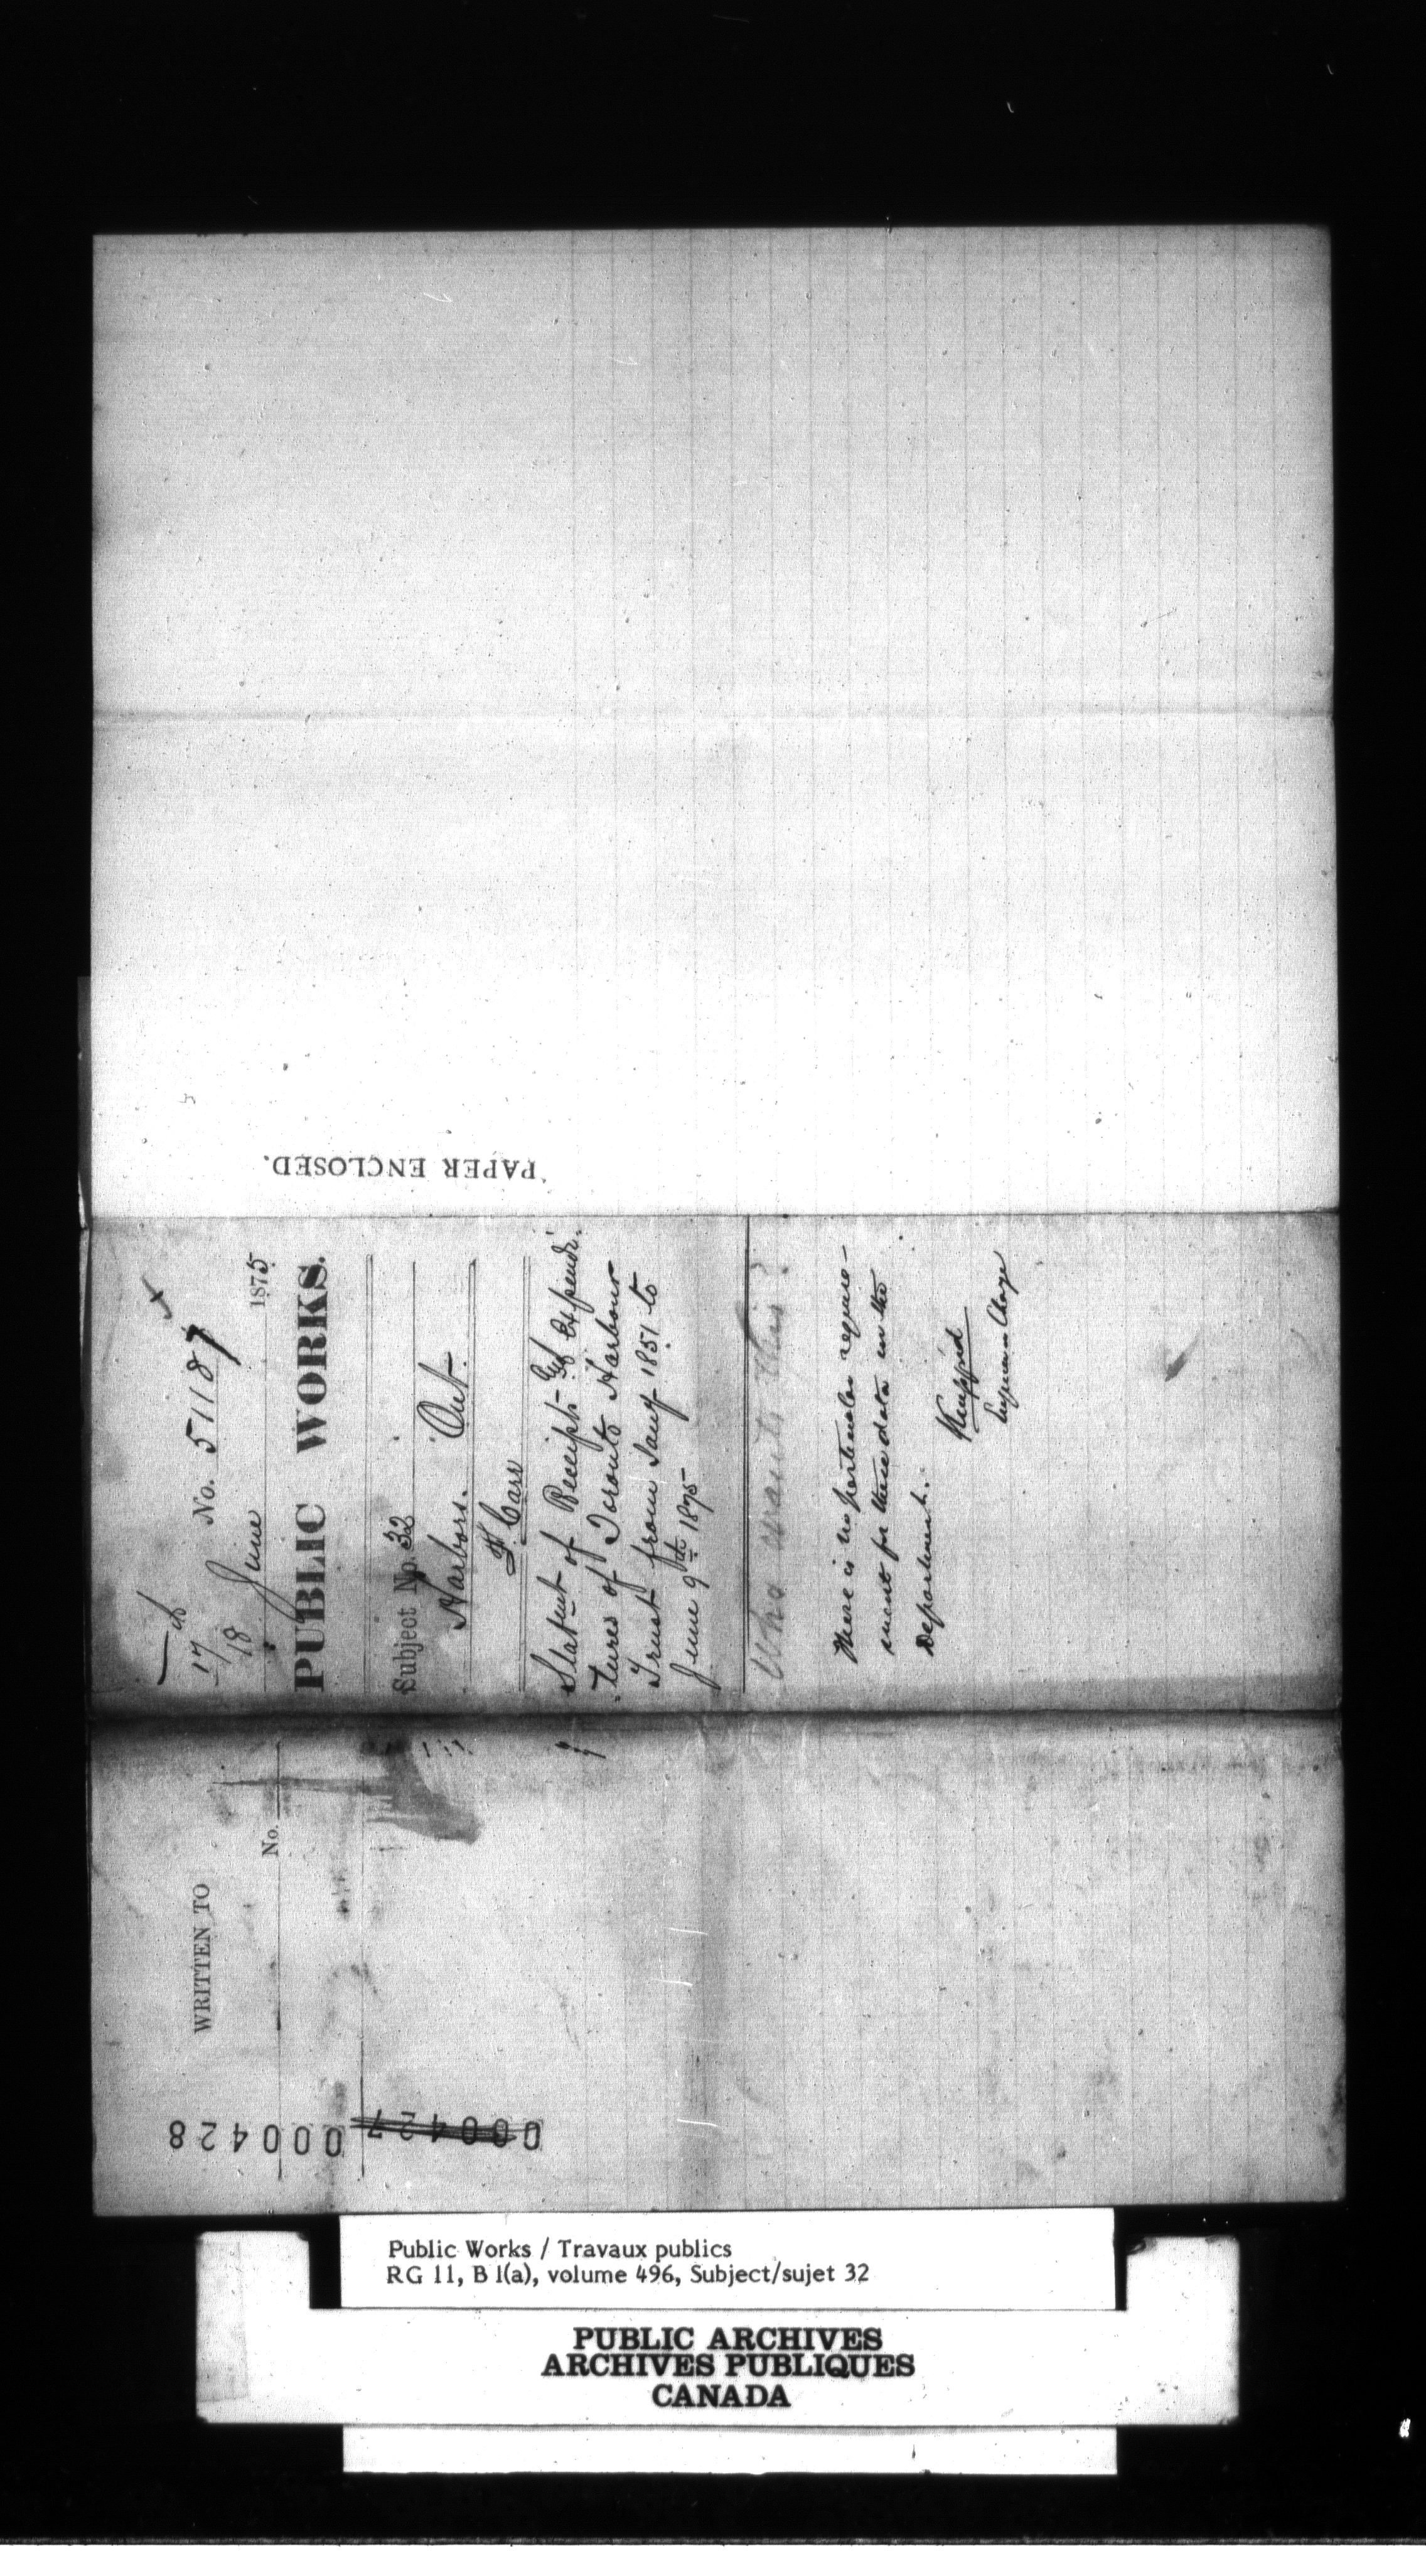 PAPER ENCLOSED.
No. 51187
17
18 June 1875
PUBLIC WORKS.
Subject No. 32
Harbors. Ont.
F. Carr
Statmt of Receipts & Expendi-
tures of Toronto Harbour
Trust from Jany 1851 to
June 9th 1875
Who wants this?
There is no particular require-
ment for these data in the
Department.
Engineer in Charge
WRITTEN TO
No.
000428
000427
Public Works / Travaux publics
RG 11, B 1(a), volume 496, Subject/sujet 32
PUBLIC ARCHIVES
ARCHIVES PUBLIQUES
CANADA